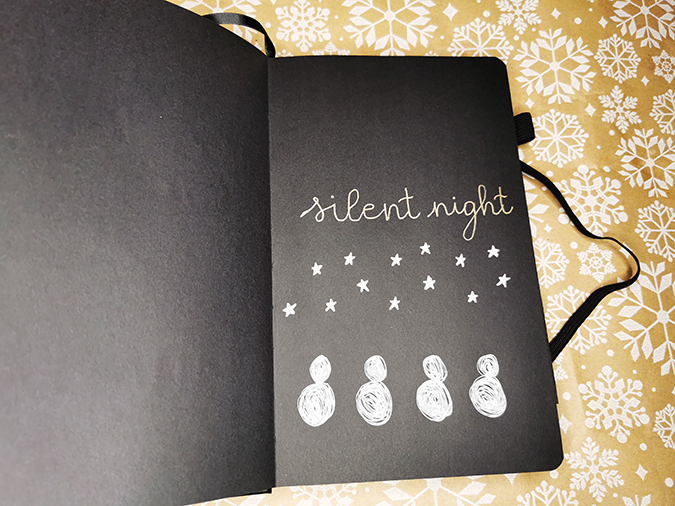 silent night